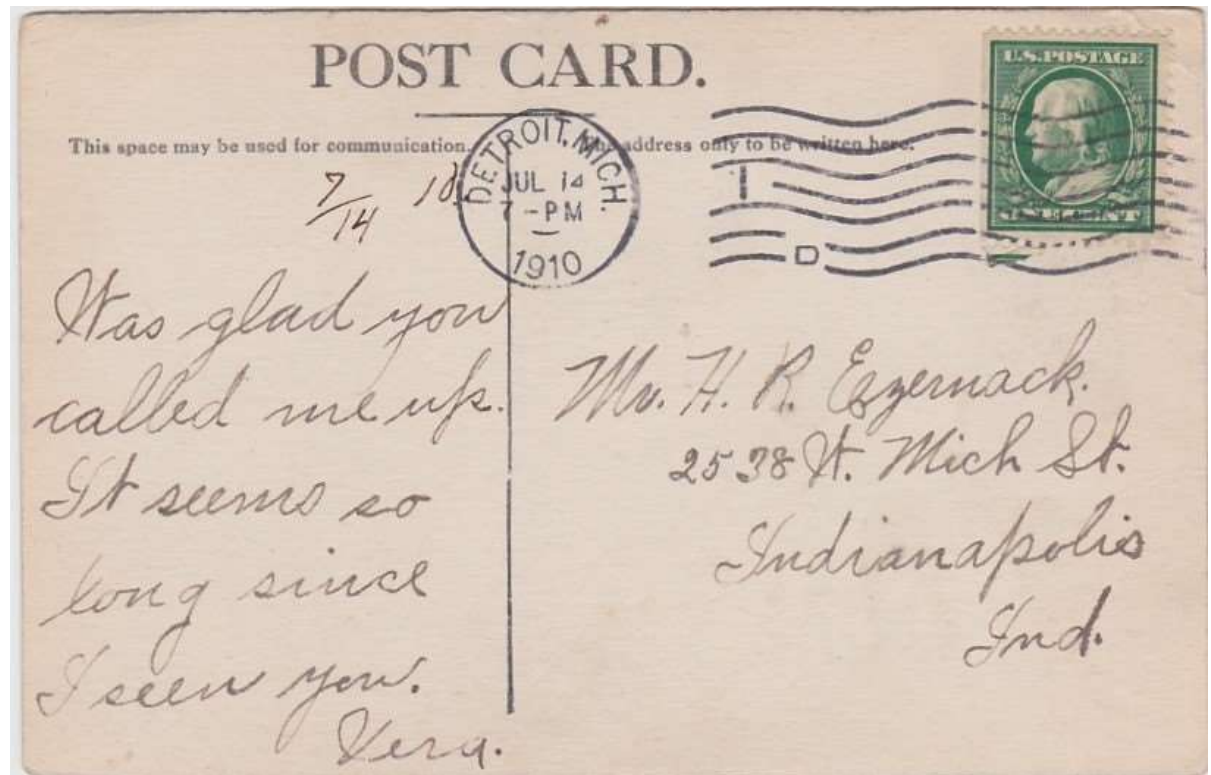 POST CARD.
This space may be used for communication.
The address only to be written here.
DETROIT, MICH.
JUL 14
7 - PM
1910
I
D
U.S. POSTAGE
ONE CENT
7/14 10
Was glad you
called me up.
It seems so
long since
I seen you.
Vera.
Mr. H. R. Ezernack.
2538 W. Mich St.
Indianapolis
Ind.